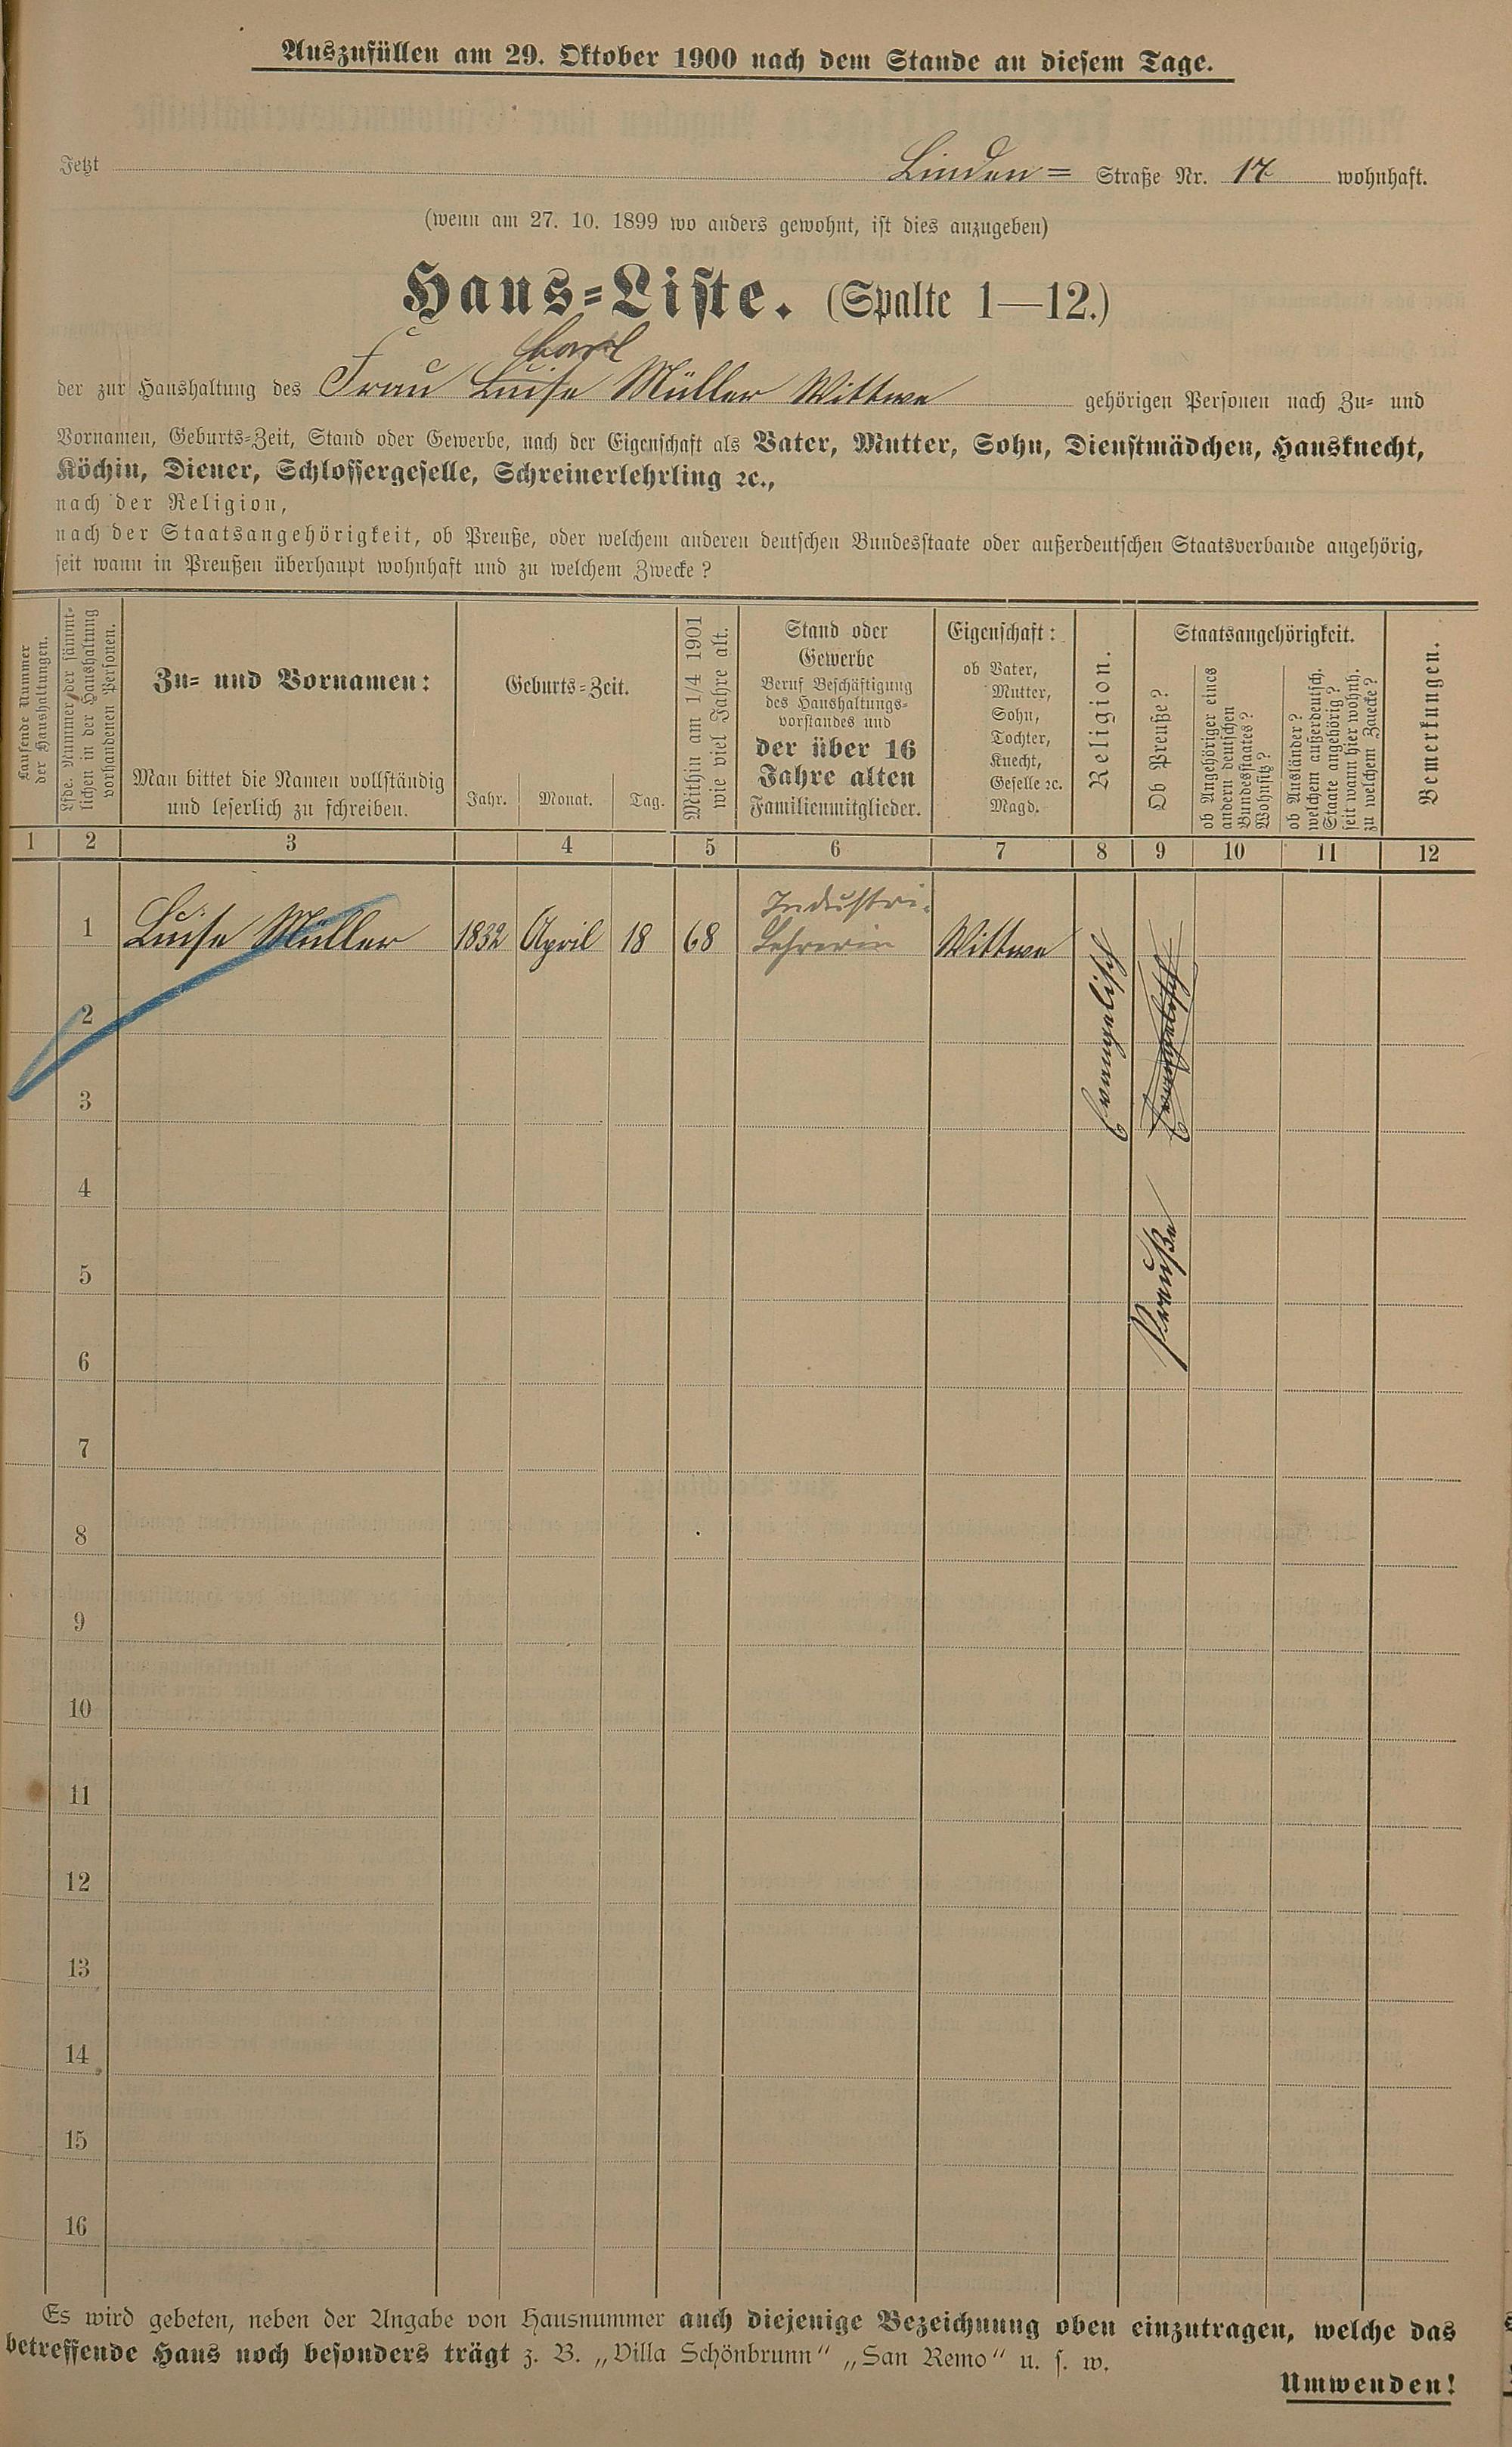 Auszufüllen am 29. Oktober 1900 nach dem Stande an diesem Tage.
Jetzt Linden= Straße Nr. 17 wohnhaft.
(wenn am 27. 10. 1899 wo anders gewohnt, ist dies anzugeben)
Haus=Liste. (Spalte 1—12.)
Carl
der zur Haushaltung des Frau Luise Müller Wittwe gehörigen Personen nach Zu= und
Vornamen, Geburts=Zeit, Stand oder Gewerbe, nach der Eigenschaft als Vater, Mutter, Sohn, Dienstmädchen, Hausknecht,
Köchin, Diener, Schlossergeselle, Schreinerlehrling ꝛc.,
nach der Religion,
nach der Staatsangehörigkeit, ob Preuße, oder welchem anderen deutschen Bundesstaate oder außerdeutschen Staatsverbande angehörig,
seit wann in Preußen überhaupt wohnhaft und zu welchem Zwecke?
Laufende Nummer
der Haushaltungen.
Lfde. Nummer der sämmt=
lichen in der Haushaltung
vorhandenen Personen.
Zu= und Vornamen:
Man bittet die Namen vollständig
und leserlich zu schreiben.
Geburts=Zeit.
Jahr. Monat. Tag.
Mithin am 1/4 1901
wie viel Jahre alt.
Stand oder
Gewerbe
Beruf Beschäftigung
des Haushaltungs=
vorstandes und
der über 16
Jahre alten
Familienmitglieder.
Eigenschaft:
ob Vater,
Mutter,
Sohn,
Tochter,
Knecht,
Geselle ꝛc.
Magd.
Religion.
Staatsangehörigkeit.
Ob Preuße?
ob Angehöriger eines
andern deutschen
Bundesstaates?
Wohnsitz?
ob Ausländer?
welchem außerdeutsch.
Staate angehörig?
seit wann hier wohnh.
zu welchem Zwecke?
Bemerkungen.
1 2 3 4 5 6 7 8 9 10 11 12
Industri=
1 Luise Müller 1832 April 18 68 Lehrerin Wittwe Evangelisch Evangelisch
2
3
4
Preuße
5
6
7
8
9
10
11
12
13
14
15
16
Es wird gebeten, neben der Angabe von Hausnummer auch diejenige Bezeichnung oben einzutragen, welche das
betreffende Haus noch besonders trägt z. B. „Villa Schönbrunn“ „San Remo“ u. s. w.
Umwenden!